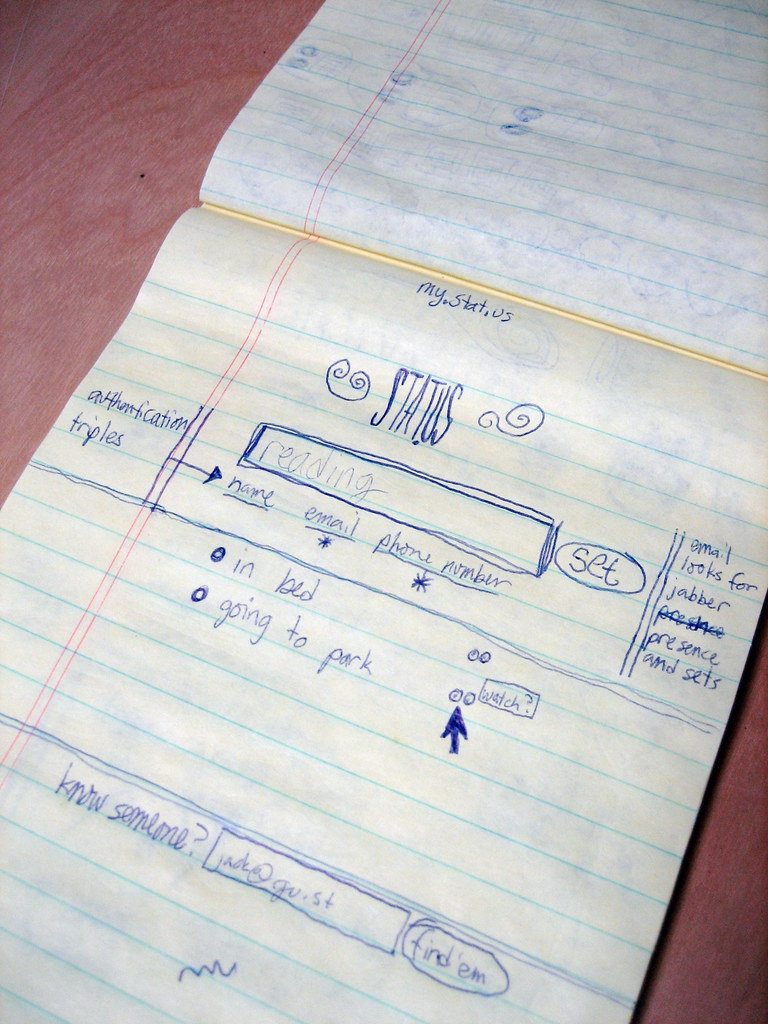 my.stat.us
STAT.US
authentication
triples
reading
name
email
phone number
*
*
set
email
looks for
jabber
presence
and sets
in bed
going to park
watch?
know someone?
find'em